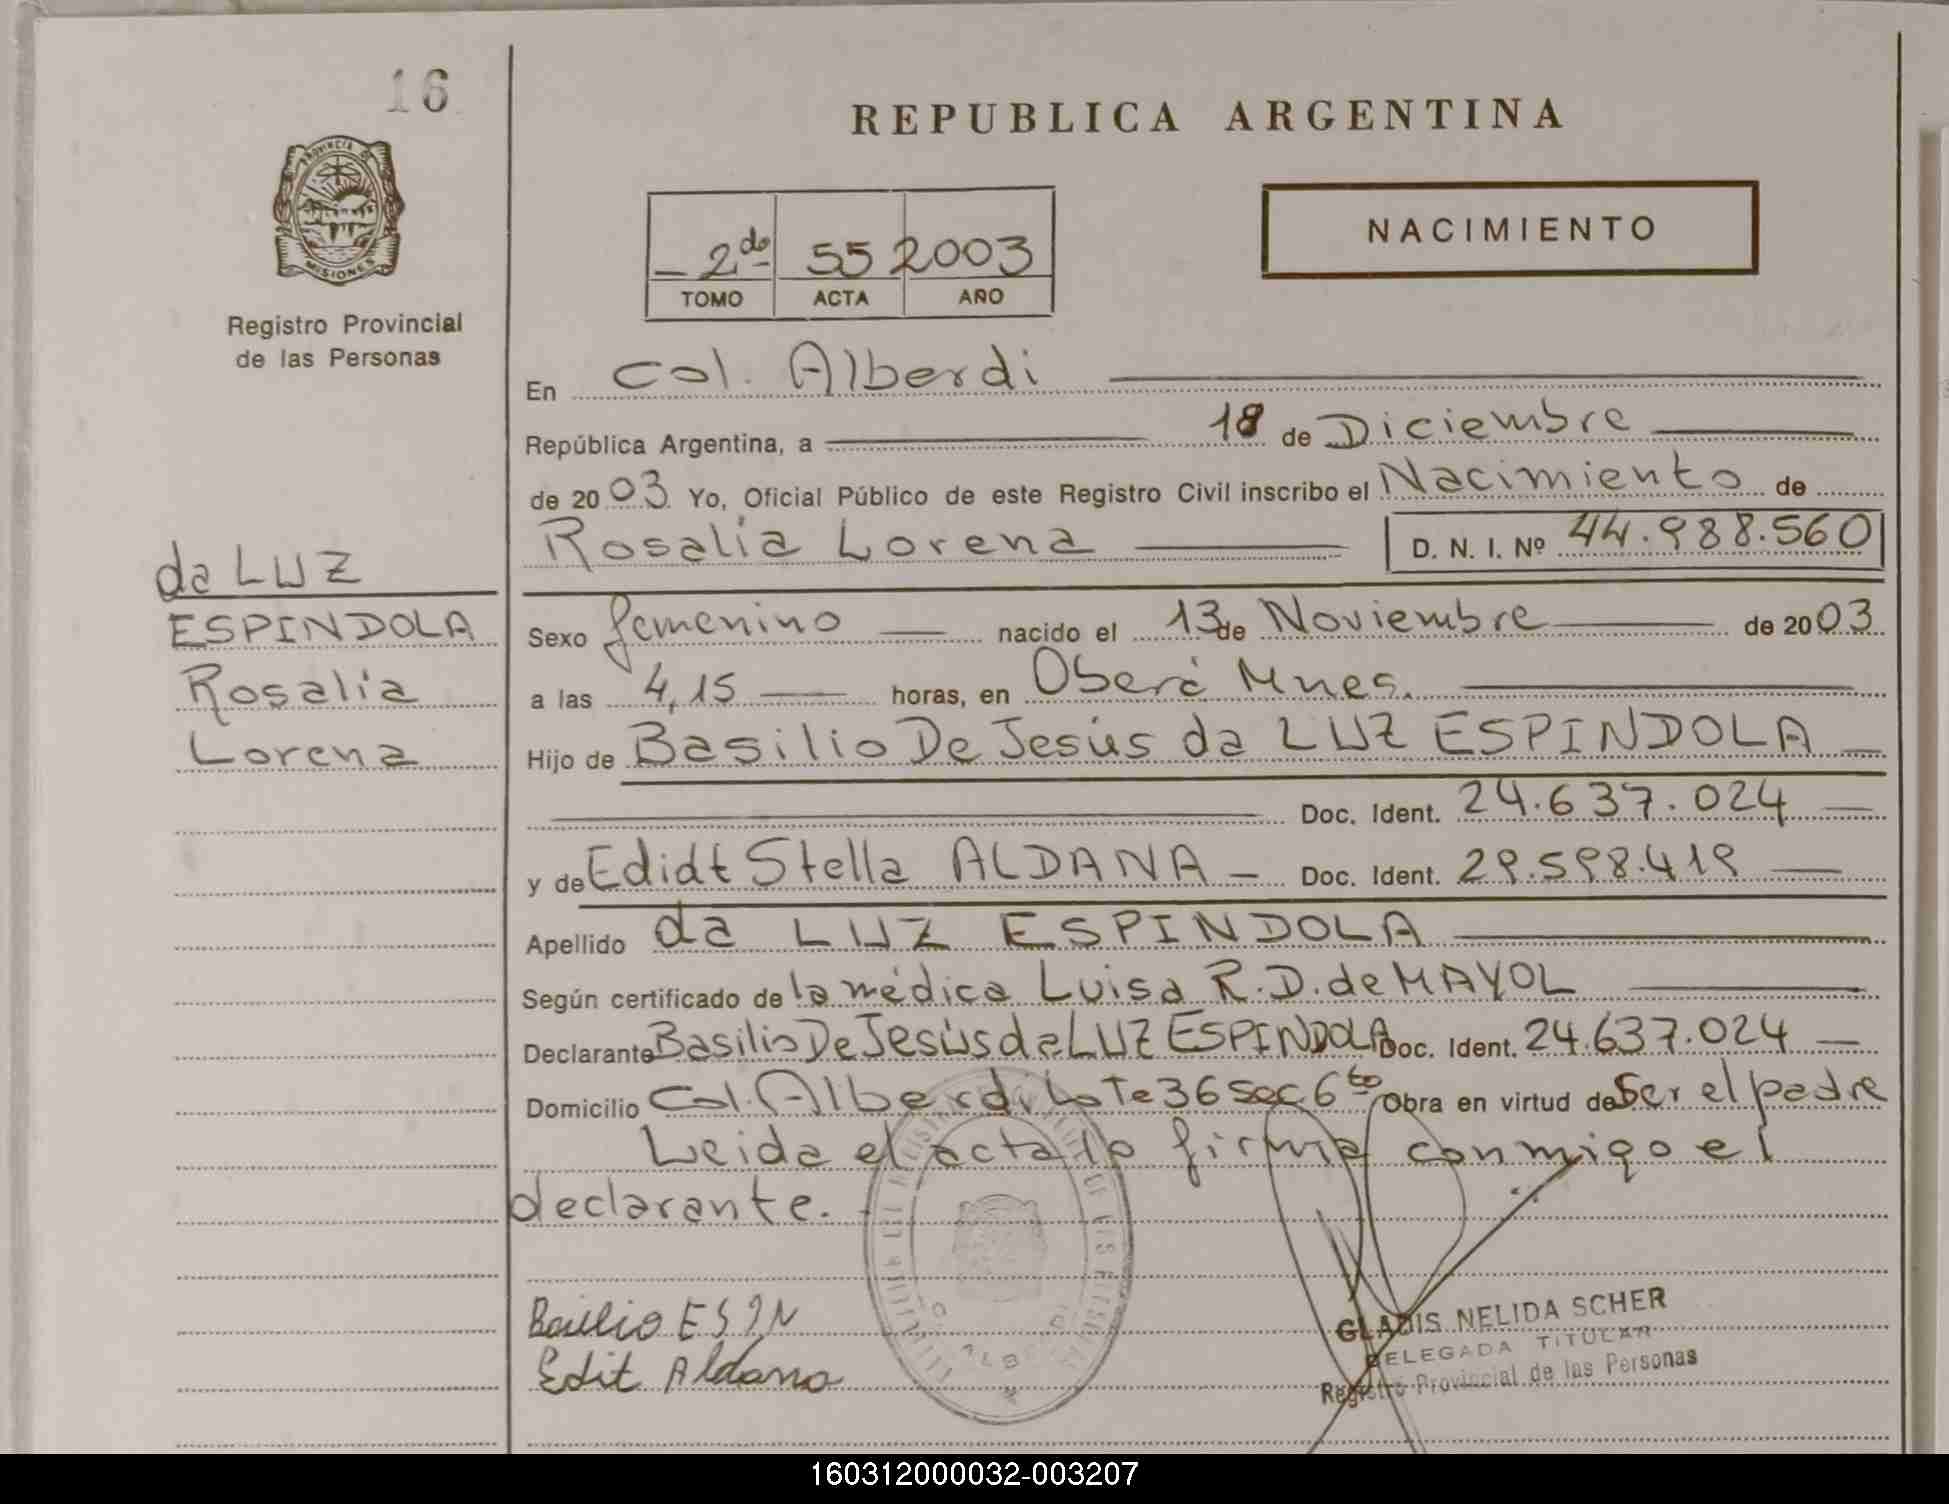 16
REPUBLICA ARGENTINA
PROVINCIA DE
MISIONES
Registro Provincial
de las Personas
2do 55 2003
TOMO ACTA AÑO
NACIMIENTO
En Col. Alberdi
República Argentina, a 18 de Diciembre
de 20 03 Yo, Oficial Público de este Registro Civil inscribo el Nacimiento de
Rosalia Lorena D. N. I. Nº 44.988.560
da LUZ
ESPINDOLA
Rosalia
Lorena
Sexo femenino nacido el 13 de Noviembre de 20 03
a las 4,15 horas, en Oberá Mnes.
Hijo de Basilio De Jesús da LUZ ESPINDOLA
Doc. Ident. 24.637.024
y de Edidt Stella ALDANA Doc. Ident. 29.598.419
Apellido da LUZ ESPINDOLA
Según certificado de la médica Luisa R.D. de MAYOL
Declarante Basilio De Jesús da LUZ ESPINDOLA Doc. Ident. 24.637.024
Domicilio Col. Alberdi Lote 36 Sec 6to Obra en virtud de Ser el padre
Leida el acta lo firma conmigo el
declarante.
Basilio ESIN
Edit Aldana
GLADIS NELIDA SCHER
DELEGADA TITULAR
Registro Provincial de las Personas
160312000032-003207